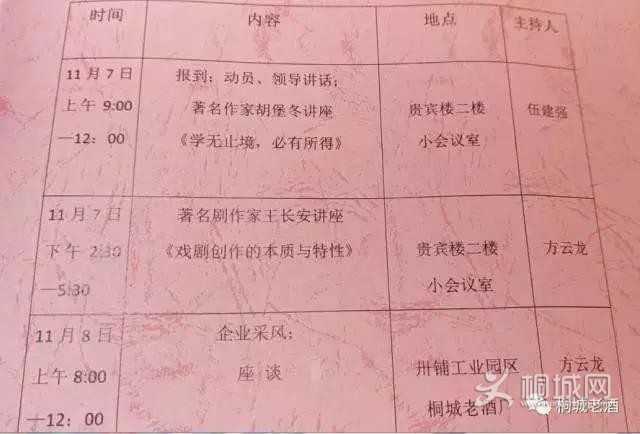 时间 内容 地点 主持人
11月7日 报到；动员、领导讲话；
上午 9:00 著名作家胡堡冬讲座 贵宾楼二楼 伍建强
—12：00 《学无止境，必有所得》 小会议室
11月7日 著名剧作家王长安讲座
下午 2:30 《戏剧创作的本质与特性》 贵宾楼二楼 方云龙
—5:30 小会议室
11月8日 企业采风；
上午 8:00 座谈 卅铺工业园区 方云龙
—12：00 桐城老酒厂
桐城网
桐城老酒